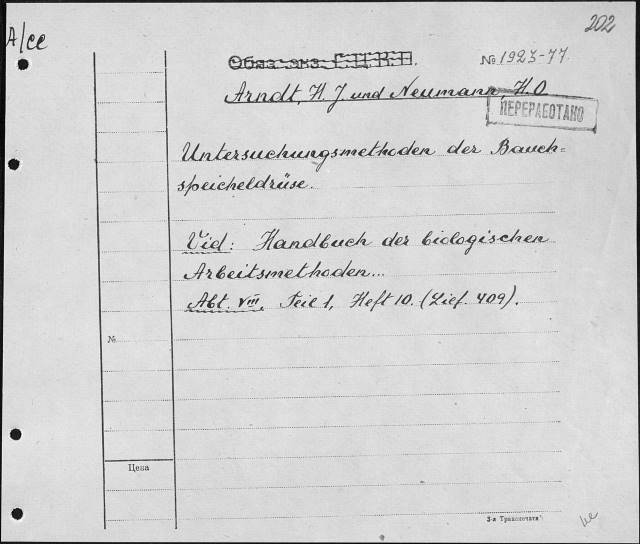 202
А/се
Обяз. экз. Г.Ц.К.П.
№ 1923-77
Arndt, H. J. und Neumann H. O
ПЕРЕРАБОТАНО
Untersuchungsmethoden der Bauch=
speicheldrüse.
Vid: Handbuch der biologischen
Arbeitsmethoden...
Abt. VIII, Teil 1, Heft 10. (Lief. 409).
№
Цена
3-я Транспечати